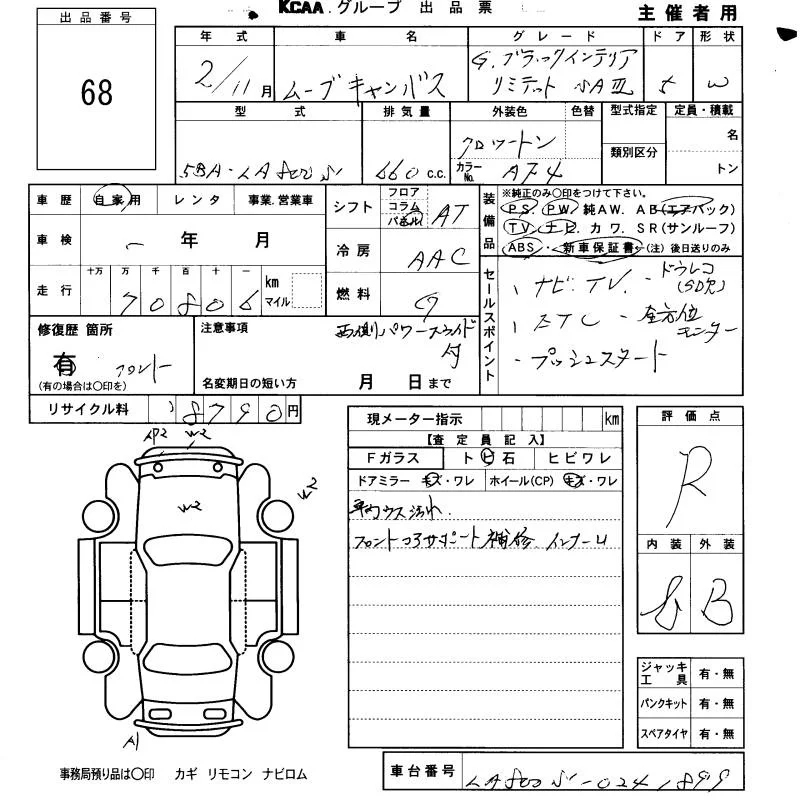 KCAA.グループ 出品票
主催者用
出品番号
68
年式 車名 グレード ドア 形状
2/11月 ムーブキャンバス G.ブラックインテリア リミテット SAⅢ 5 W
型式 排気量 外装色 色替 型式指定 定員・積載
5BA-LA800S 660 c.c. クロツートン カラーNo. 類別区分 名 トン
車歴 自家用 レンタ 事業.営業車
車検 - 年 月
走行 十万 万 千 百 十 一
70806 km マイル
シフト フロア コラム パネル AT
冷房 AAC
燃料 G
装備品
※純正のみ〇印をつけて下さい。
PS. PW. 純AW. AB(エアバック)
TV. ナビ. カワ. SR(サンルーフ)
ABS. 新車保証書←(注) 後日送りのみ
セールスポイント
・ナビ.TV. ・ドラレコ(SD欠)
・ETC ・全方位モニター
・プッシュスタート
修復歴 箇所
有 フロント
(有の場合は〇印を)
注意事項 両側パワースライド付
名変期日の短い方 月 日まで
リサイクル料 8790円
現メーター指示 km
【査定員記入】
Fガラス トビ石 ヒビワレ
ドアミラー キズ・ワレ ホイール(CP) キズ・ワレ
車内ウス汚れ
フロントコアサポート補修
評価点
R
内装 外装
B
AP2 W2
W2
W2
A1
ジャッキ工具 有・無
パンクキット 有・無
スペアタイヤ 有・無
事務局預り品は〇印 カギ リモコン ナビロム
車台番号 LA800S-0241899